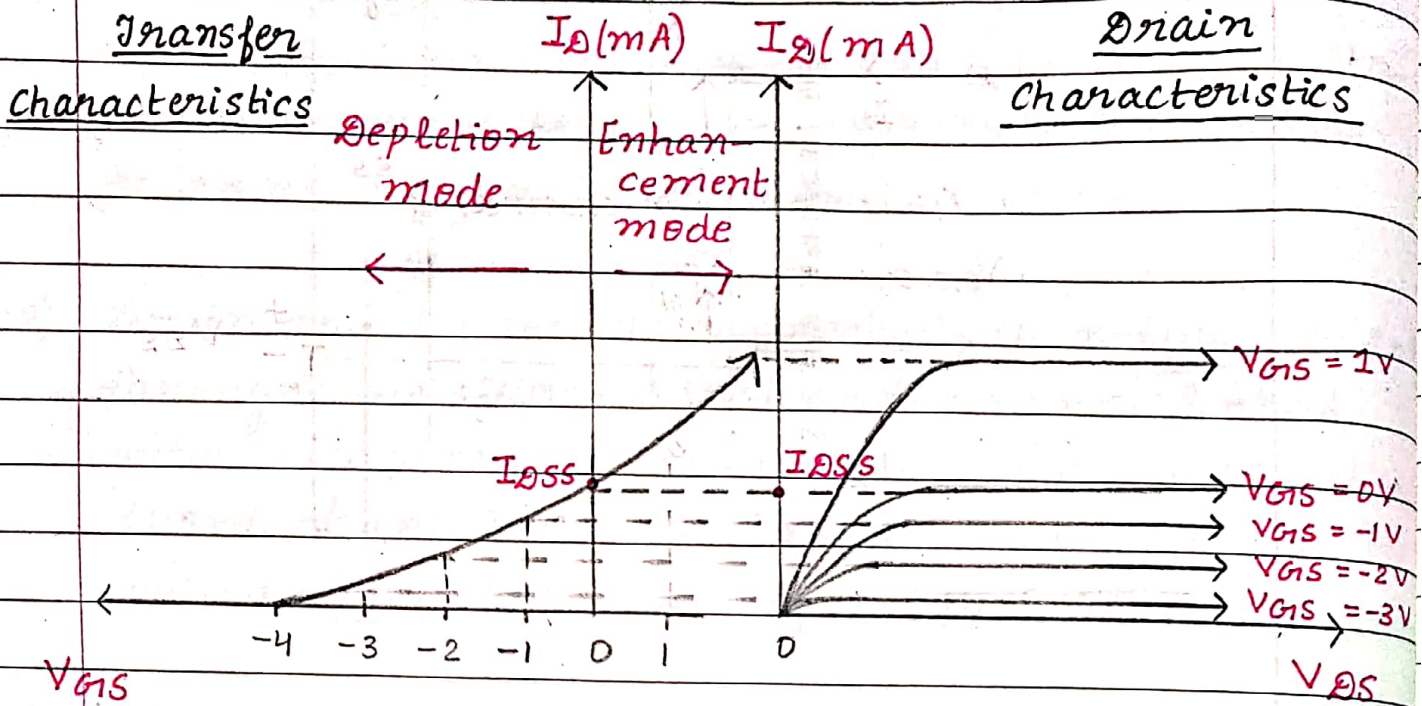 Transfer
Characteristics
ID(mA)
ID(mA)
Drain
Characteristics
Depletion
mode
Enhan-
cement
mode
VGS = 1V
IDSS
IDSS
VGS = 0V
VGS = -1V
VGS = -2V
VGS = -3V
-4 -3 -2 -1 0 1
0
VGS
VDS